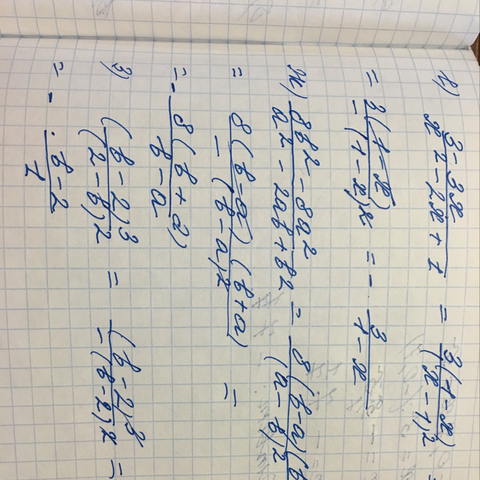 е) 3-3x / x²-2x+1 = 3(1-x) / (x-1)² =
= 3(1-x) / -(1-x)² = - 3 / 1-x
ж) 8b²-8a² / a²-2ab+b² = 8(b-a)(b / (a-b)²
= 8(b-a)(b+a) / -(b-a)² =
= - 8(b+a) / b-a
з) (b-2)³ / (2-b)² = (b-2)³ / -(b-2)² =
= - b-2 / 1